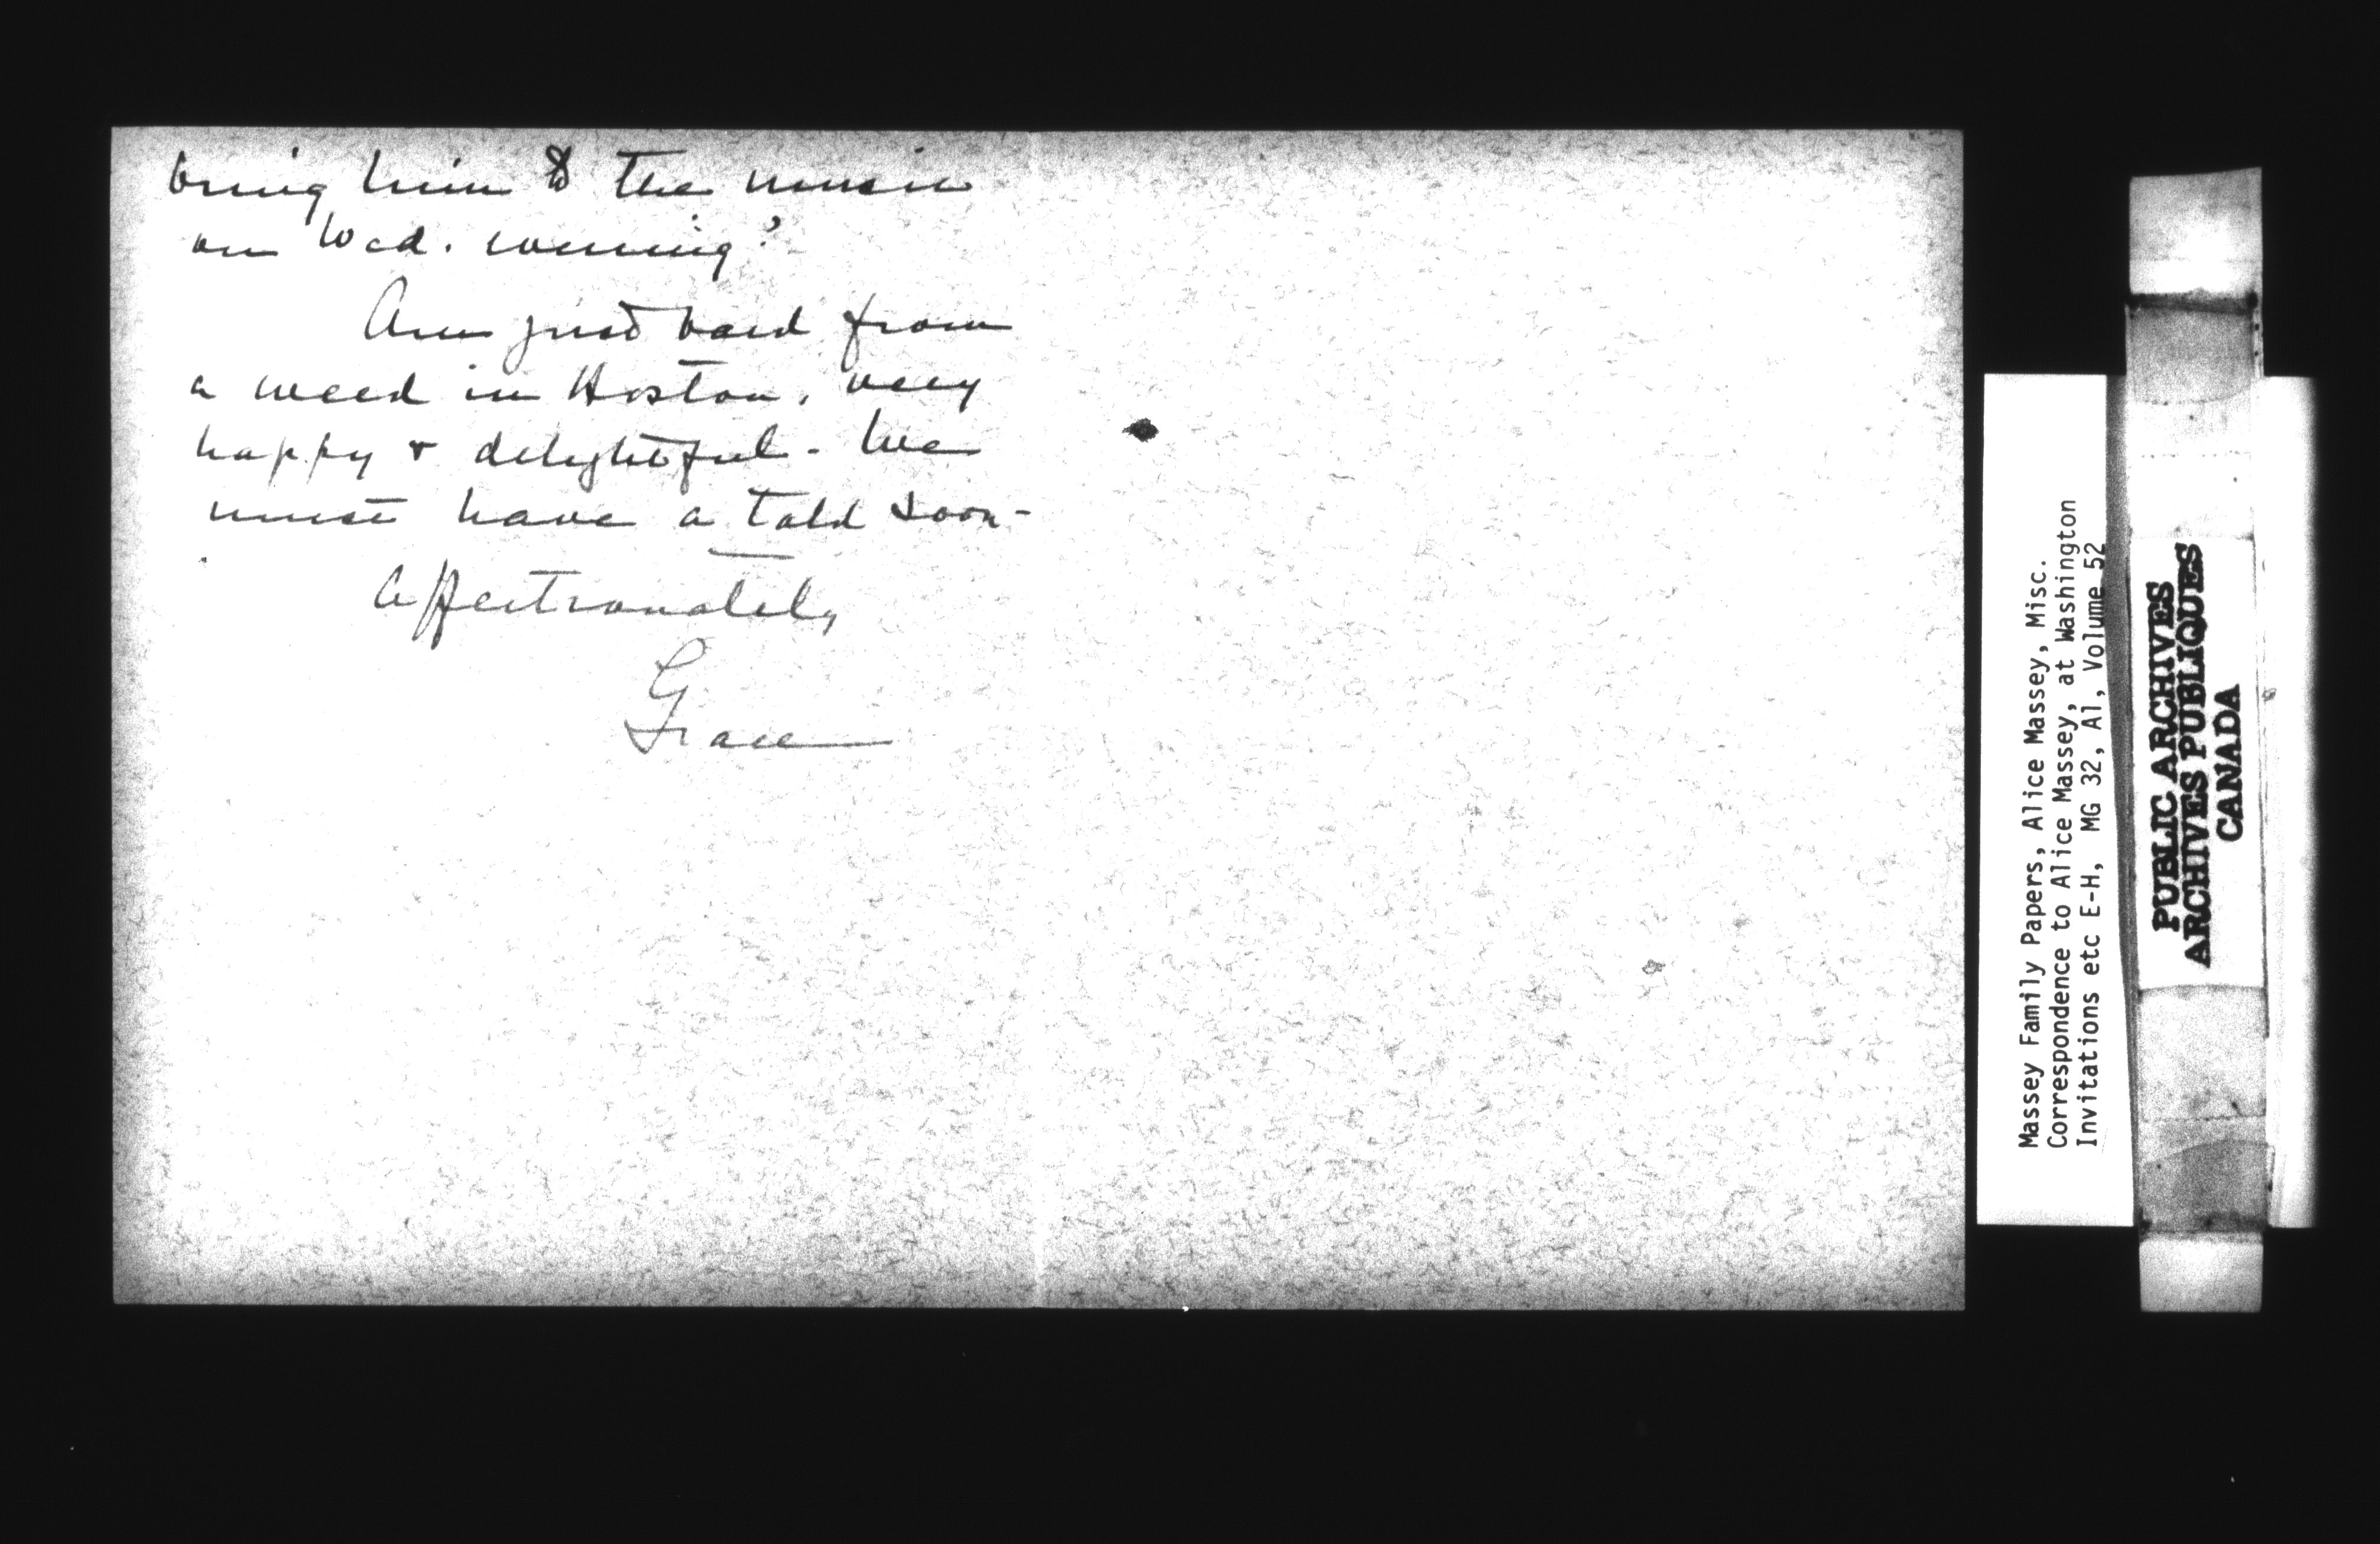 bring him to the music
on Wed. evening?
Am just back from
a week in Boston, very
happy & delightful - We
must have a talk soon -
Affectionately
Grace
Massey Family Papers, Alice Massey, Misc.
Correspondence to Alice Massey, at Washington
Invitations etc E-H, MG 32, A1, Volume 52
PUBLIC ARCHIVES
ARCHIVES PUBLIQUES
CANADA